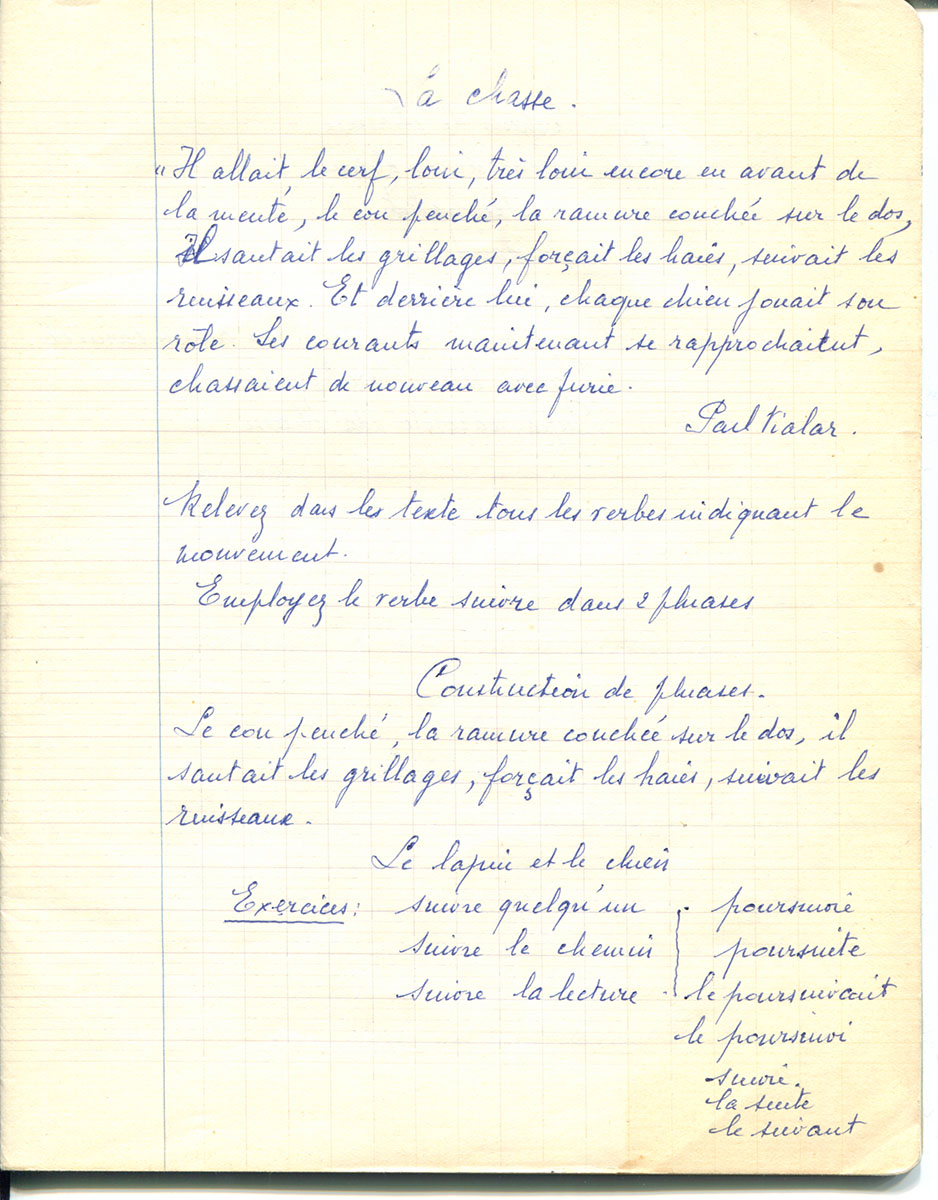 La chasse.
"Il allait, le cerf, loin, très loin encore en avant de
la meute, le cou penché, la ramure couchée sur le dos,
Il sautait les grillages, forçait les haies, suivait les
ruisseaux. Et derrière lui, chaque chien jouait son
rôle. Les courants maintenant se rapprochaient,
chassaient de nouveau avec furie.
Paul Vialar.
Relevez dans les texte tous les verbes indiquant le
mouvement.
Employez le verbe suivre dans 2 phrases
Construction de phrases.
Le cou penché, la ramure couchée sur le dos, il
sautait les grillages, forçait les haies, suivait les
ruisseaux.
Le lapin et le chien
Exercices: suivre quelqu'un poursuivre
suivre le chemin poursuite
suivre la lecture le poursuivait
le poursuivi
suivre.
la suite
le suivant